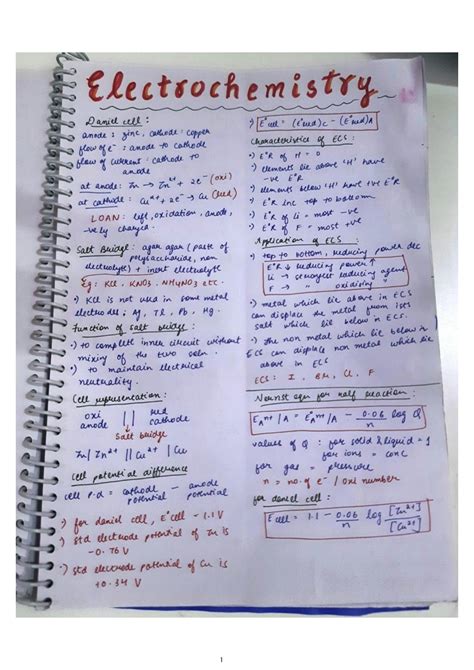 Electrochemistry
Daniel cell :
anode : zinc, cathode : copper
flow of e⁻ : anode to cathode
flow of current : cathode to
anode
at anode : Zn → Zn²⁺ + 2e⁻ (oxi)
at cathode : Cu²⁺ + 2e⁻ → Cu (red)
LOAN : left, oxidation, anode,
-vely charged.
Salt Bridge : agar agar (paste of
polysaccharide, non
electrolyte) + inert electrolyte
Eg : KCl, KNO₃, NH₄NO₃ etc.
KCl is not used in some metal
electrodes ; Ag, Tl, Pb, Hg.
Function of salt bridge :
to complete inner circuit without
mixing of the two soln.
to maintain electrical
neutrality.
Cell representation :
oxi || red
anode cathode
Salt Bridge
Zn | Zn²⁺ || Cu²⁺ | Cu
Cell potential difference
cell p.d = cathode potential - anode potential
for daniel cell, E°cell = 1.1 V
std electrode potential of Zn is
-0.76 V
std electrode potential of Cu is
+0.34 V
E°cell = (E°red)c - (E°red)A
Characteristics of ECS :
E°R of H = 0
elements lie above 'H' have
-ve E°R
elements below 'H' have +ve E°R
E°R inc top to bottom
E°R of Li - most -ve
E°R of F - most +ve
Application of ECS :
top to bottom, reducing power dec
E°R ↓ reducing power ↑
Li → strongest reducing agent
F → " oxidising "
metal which lie above in ECS
can displace the metal from its
salt which lie below in ECS.
The non metal which lie below in
ECS can displace non metal which lie
above in ECS
ECS : I, Br, Cl, F
Nernst eqn for half reaction :
E Aⁿ⁺/A = E° Aⁿ⁺/A - 0.06/n log Q
values of Q : for solid & liquid = 1
for ions = conc
for gas = pressure
n = no of e⁻ / oxi number
for daniel cell :
Ecell = 1.1 - 0.06/n log [Zn²⁺]/[Cu²⁺]
1